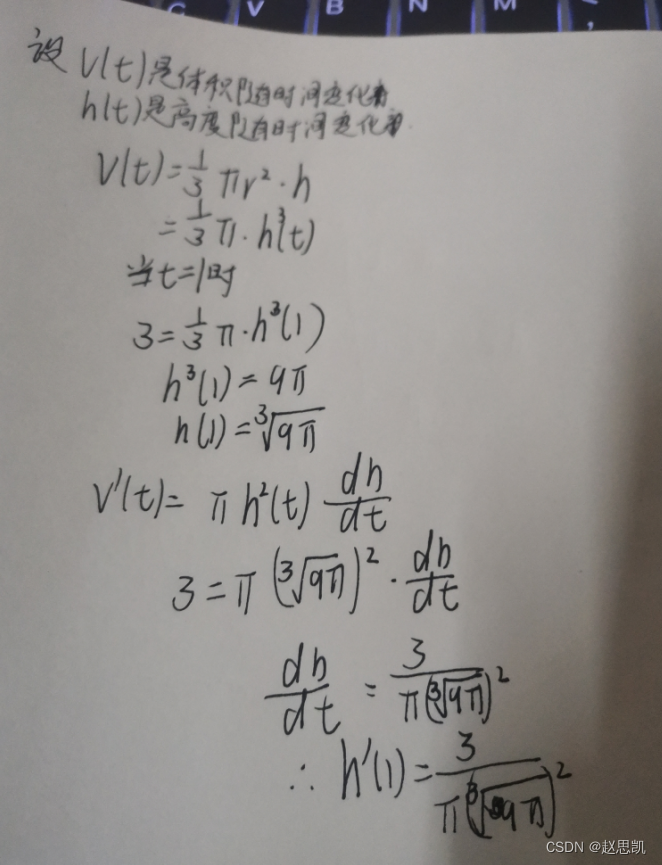 C V B N M
设 V(t)是体积随时间变化率
h(t)是高度随时间变化率.
V(t)=\frac{1}{3}πr²·h
=\frac{1}{3}π·h³(t)
当t=1时
3=\frac{1}{3}π·h³(1)
h³(1)=9π
h(1)=\sqrt[3]{9π}
V'(t)=πh²(t)\frac{dh}{dt}
3=π(\sqrt[3]{9π})²·\frac{dh}{dt}
\frac{dh}{dt}=\frac{3}{π(\sqrt[3]{9π})²}
∴ h'(1)=\frac{3}{π(\sqrt[3]{9π})²}
CSDN @赵思凯